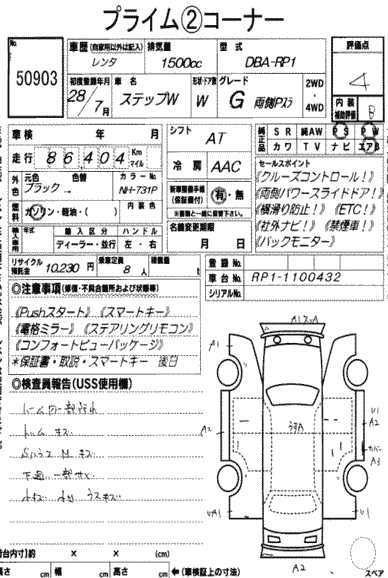 プライム②コーナー
No.
50903
車歴 (自家用以外は記入) レンタ
排気量 1500cc
型式 DBA-RP1
評価点 4
初度登録年月 28/7月
車名 ステップW
形状・ドア数 W
グレード G 両側Pスラ
2WD・4WD
内装補助評価 B
車検 年 月
シフト AT
純正品 SR 純AW PS PW
カワ TV ナビ エアB
走行 86,404 Km マイル
冷房 AAC
セールスポイント
《クルーズコントロール!》
《両側パワースライドドア!》
《横滑り防止!》《ETC!》
《社外ナビ!》《禁煙車!》
《バックモニター》
外色 元色 色替 カラーNo
ブラック→ NH-731P
新車整備手帳(保証書付) 有・無
※書類と一緒に保管下さい。
燃料 ガソリン・軽油・( )
内装色
名義変更期限 月 日
輸入車用 年式 輸入区分 ハンドル
ディーラー・並行 左・右
リサイクル預託金 10,230円
乗車定員 8人
積載量 t
登録No.
車台No. RP1-1100432
シリアルNo.
◎注意事項(修復・不具合箇所および状態等)
《Pushスタート》《スマートキー》
《電格ミラー》《ステアリングリモコン》
《コンフォートビューパッケージ》
*保証書・取説・スマートキー 後日
◎検査員報告(USS使用欄)
A1
A2
A2
A3
A2
(荷台内寸)約 × × (cm)
長さ cm 幅 cm 高さ cm ←(車検証上の寸法)
スペア